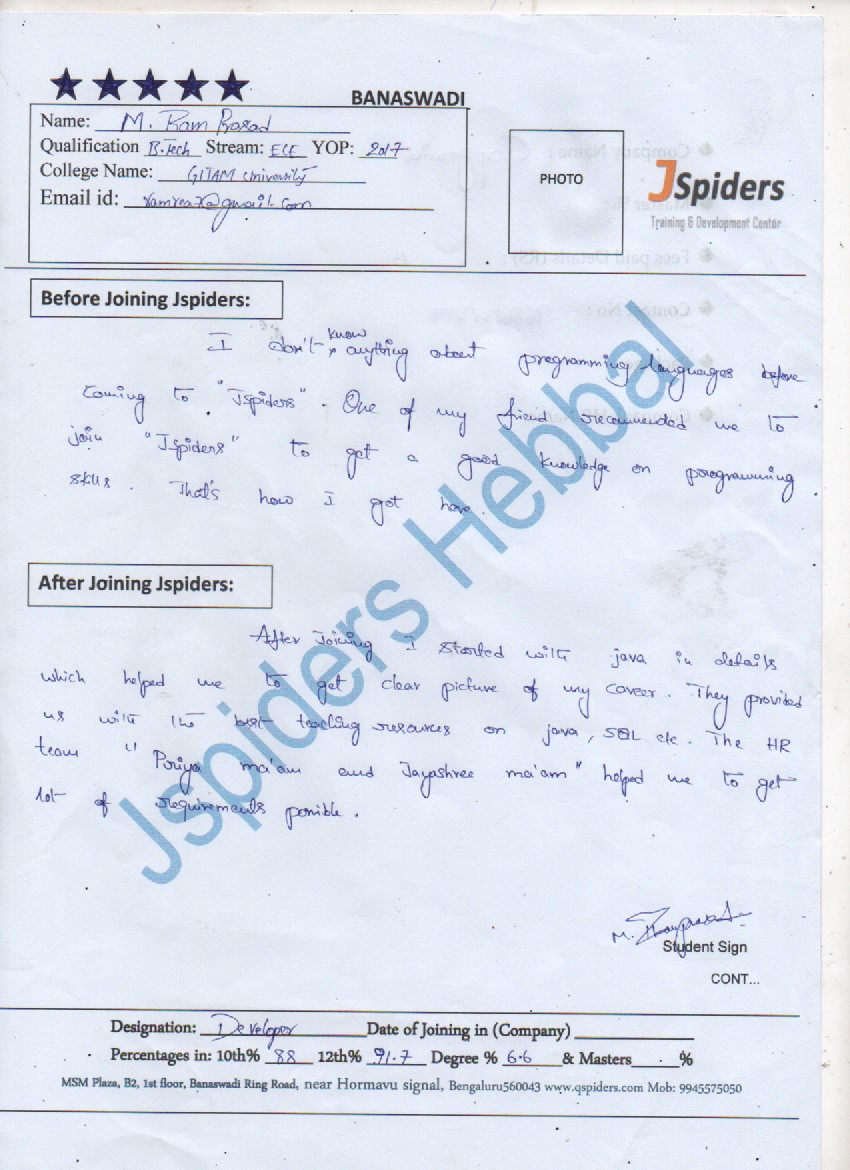 BANASWADI
Name: M. Ram Prasad
Qualification B.Tech Stream: ECE YOP: 2017
College Name: GITAM University
Email id: @gmail.com
PHOTO
JSpiders
Training & Development Center
Before Joining Jspiders:
I don't know anything about programming languages before
coming to "Jspiders". One of my friend recommended me to
join "Jspiders" to get a good knowledge on programming
skills. That's how I got here.
After Joining Jspiders:
After Joining I started with java in details
which helped me to get clear picture of my career. They provided
us with the best teaching resources on java, SQL etc. The HR
team "Priya ma'am and Jayashree ma'am" helped me to get
lot of requirements possible.
Jspiders Hebbal
M.
Student Sign
CONT...
Designation: Developer Date of Joining in (Company)
Percentages in: 10th% 88 12th% 91.7 Degree % 6.6 & Masters %
MSM Plaza, B2, 1st floor, Banaswadi Ring Road, near Hormavu signal, Bengaluru560043 www.qspiders.com Mob: 9945575050